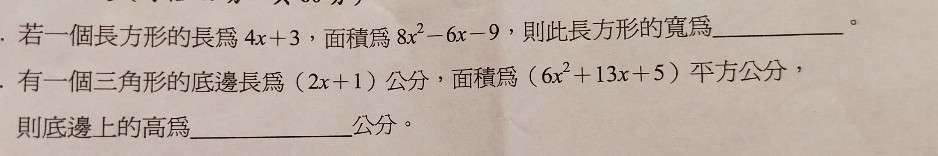 . 若一個長方形的長為 4x+3，面積為 8x²−6x−9，則此長方形的寬為____________。
. 有一個三角形的底邊長為（2x+1）公分，面積為（6x²+13x+5）平方公分，
則底邊上的高為______________公分。